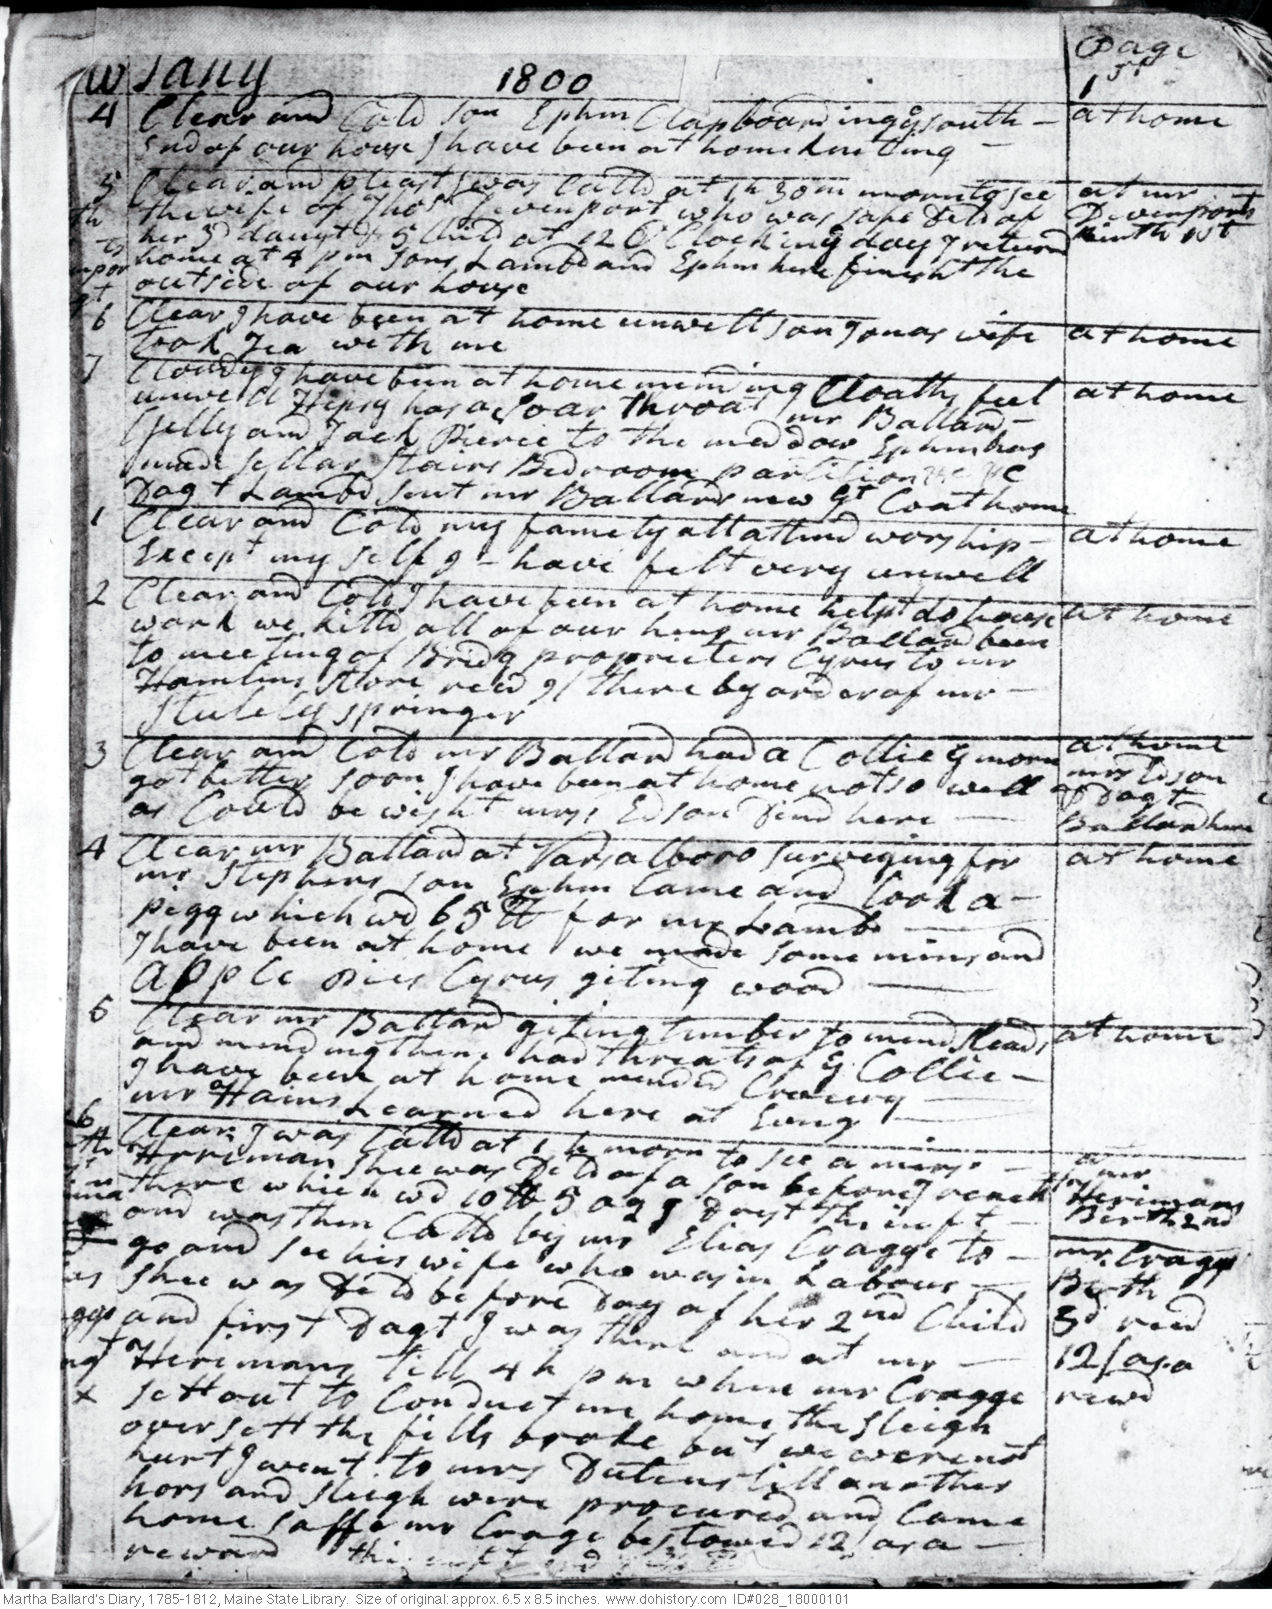 W Jany 1800 Page 1st
4 Clear and Cold son Ephm Clapboarding ye south - at home
End of our house I have been at home knitting -
5 Clear and pleast I was Calld at 1 h 30 m morn to see at mr
the wife of Thos Devenport who was safe Deld of Devenports
her 3d daugt & 5 Child at 12 O Clock ing day I returnd Birth 1st
home at 4 pm sons Lambd and Ephm here finisht the
outside of our house
6 Clear I have been at home unwell son Jonas wife at home
took Tea with me
7 Cloudy I have been at home mending Cloaths feel at home
unwell Hepsy has a Soar throat mr Ballard -
Gilly and Jack Pierce to the meddow Ephm has
made sellar stairs Bedroom partition &c &c
Dagt Lambd sent mr Ballards new gt Coat home
1 Clear and Cold my famely all attend worship - at home
Except my self I - have felt very unwell
2 Clear and Cold I have been at home helpt do house at home
work we killd all of our hens mr Ballard been
to meeting of Bridg proprietors Cyrus to mr
Hamlins store recd 9/ there by order of mr -
Stutely springer
3 Clear and Cold mr Ballard had a Collic ys morn at home
got better soon I have been at home not so well mrs Edson
as Could be wisht mrs Edson Dind here - & Dagt
Ballard here
4 Clear mr Ballard at Varsalboro surveying for at home
mr Stephens son Ephm Came and took a -
pigg which wd 65 lb for mr Lambd
I have been at home we made some mins and
apple pies Cyrus giting wood
5 Clear mr Ballard giting timber to mend Sleads at home
and mending them had threats of ye Collic -
I have been at home mended Crocery
mr Hains Learned here at Eving
6 Clear I was Calld at 1 h morn to see a mirs - at mr
Herriman shee was Deld of a son before I reacht Herimans
there which wd 10 lb 5 Dagt the inft - Birth 2nd
and was then Calld by mr Elias Cragge to -
go and see his wife who was in Labour - mr Craggs
shee was Deld before Day of her 2nd Child Birth
and first Dagt I was there and at mr - 3d recd
Herimans till 4 h pm when mr Cragge 12/ as a
x sett out to Conduct me home the sleigh rewd
oversett the fills broke but we were not
hurt I went to mrs Dutens till another
hors and sleigh were procured and Came
home saffe mr Crage bestowed 12/ as a -
reward
Martha Ballard's Diary, 1785-1812, Maine State Library. Size of original: approx. 6.5 x 8.5 inches. www.dohistory.com ID#028_18000101